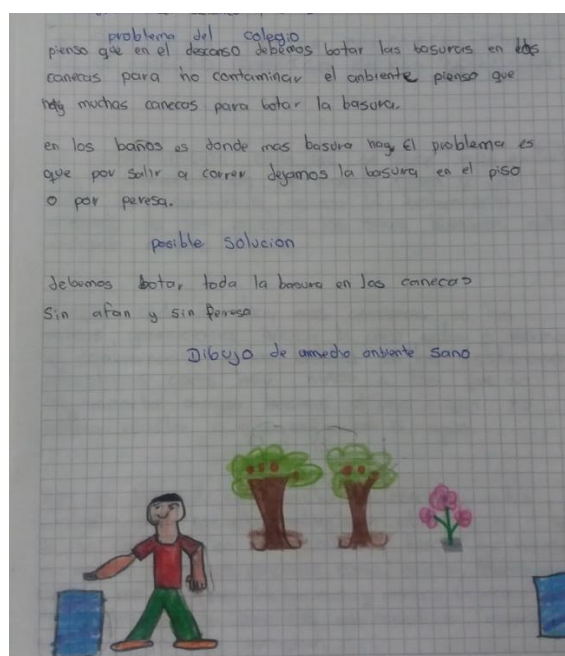 problema del colegio
pienso que en el descanso debemos botar las basuras en las
canecas para no contaminar el anbiente pienso que
hay muchas canecas para botar la basura.
en los baños es donde mas basura hay, el problema es
que por salir a correr dejamos la basura en el piso
o por peresa.
posible solucion
debemos botar toda la basura en las canecas
sin afan y sin peresa
Dibujo de unmedio anbiente sano